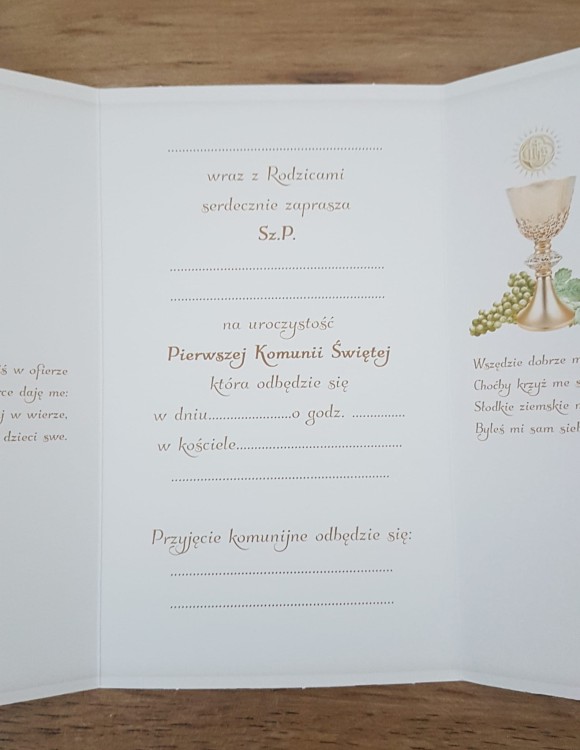 ś w ofierze
ce daję me:
j w wierze,
dzieci swe.
........................................................
wraz z Rodzicami
serdecznie zaprasza
Sz.P.
........................................................
........................................................
na uroczystość
Pierwszej Komunii Świętej
która odbędzie się
w dniu......................o godz. ..............
w kościele............................................
........................................................
Przyjęcie komunijne odbędzie się:
........................................................
........................................................
IHS
Wszędzie dobrze
Choćby krzyż me
Słodkie ziemskie
Byleś mi sam